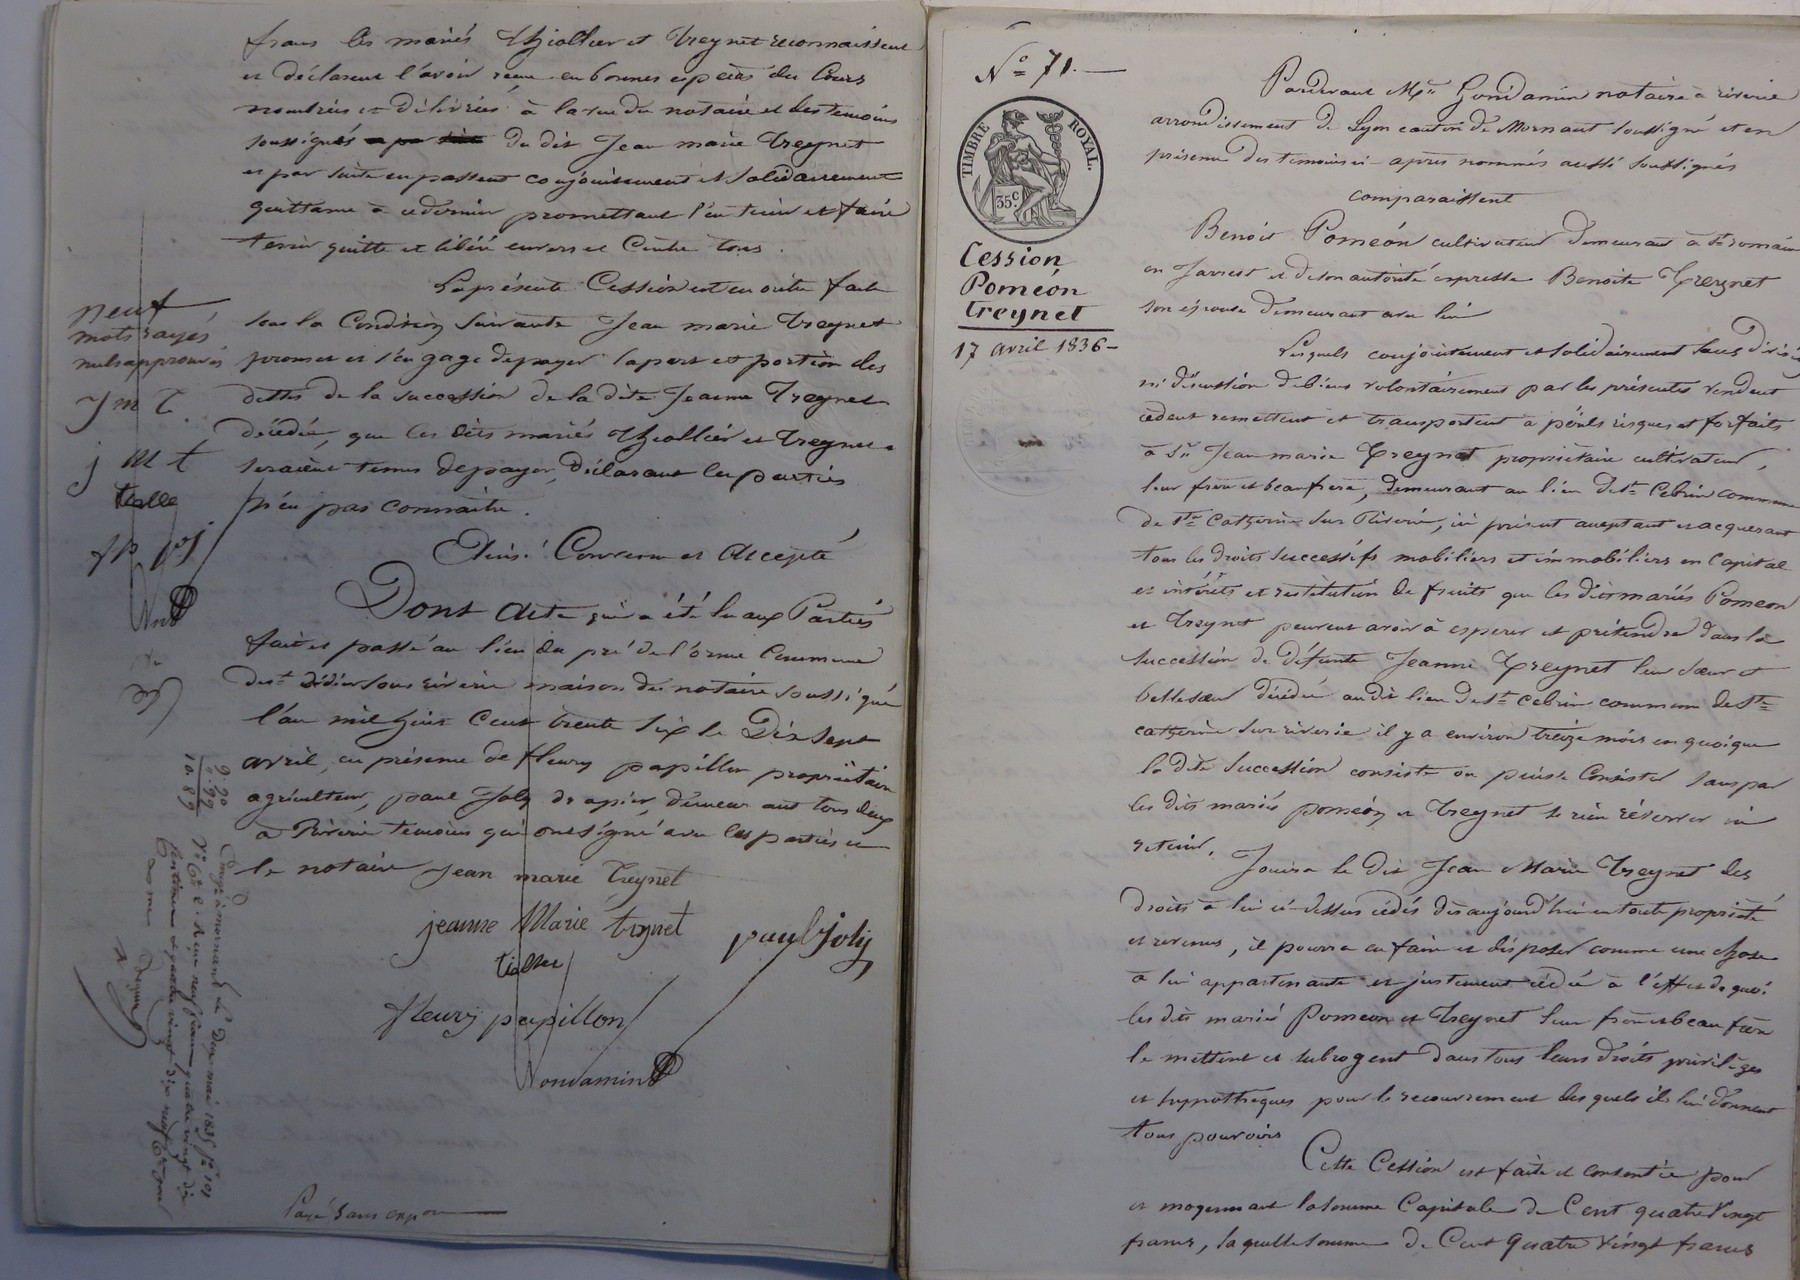 francs les mariés thiollier et treynet reconnaissent
et déclarent l'avoir reçue en bonnes espèces du Cours
nombrées et délivrées à la vue du notaire et des temoins
soussignés du dit Jean marie treynet
et par suite en passent conjointement et solidairement
quittance à ce dernier promettant l'en tenir et faire
tenir quitte et libéré envers et Contre tous.
La présente Cession est en outre faite
sous la Condition Suivante Jean marie treynet
promet et s'engage de payer la part et portion des
dettes de la succession de la dite Jeanne Treynet
décédée, que les dits mariés thiollier et treynet
seraient tenus de payer, Déclarant les parties
n'en pas connaitre.
Ainsi Convenu et Accepté
Dont Acte qui a été lu aux Parties
fait et passé au lieu du pré de l'orme Commune
de st didier sous riverie maison du notaire soussigné
l'an mil huit Cent trente Six le Dix sept
avril, en présence de fleury papillon propriétaire
agriculteur, paul Joly drapier, demeurant tous deux
à Riverie temoins qui ont signé avec les parties et
le notaire jean marie treynet
jeanne Marie treynet
paul joly
tiollier
fleury papillon
Gondamin
neuf
mots rayés
nuls approuvés
j m t
j m t
9. 90
. 99
10. 89
Payé sans
No 71.
TIMBRE ROYAL.
35 c
Cession
Poméon
treynet
17 avril 1836
Pardevant Me Gondamin notaire à riverie
arrondissement de Lyon canton de Mornant soussigné et en
présence des temoins ci-après nommés aussi soussignés
comparaissent
Benoit Poméon cultivateur demeurant à St romain
en Jarrest et de son autorité expresse Benoite Treynet
son épouse demeurant avec lui
Lesquels conjointement et solidairement sans division
ni discussion de biens volontairement par les présentes vendent
cedent remettent et transportent à périls risques et forfaits
à Sr Jean marie Treynet propriétaire cultivateur,
leur frère et beaufrère, demeurant au lieu de St Cebrin commune
de Ste Catherine sur Riverie, ici présent acceptant et acquerant
tous les droits successifs mobiliers et immobiliers en Capital
et intérêts et restitution de fruits que les dits mariés Pomeon
et Treynet peuvent avoir à esperer et prétendre dans la
succession de Défunte Jeanne Treynet leur sœur et
bellesœur décédée au dit lieu de St Cebrin commune de Ste
catherine sur riverie il y a environ treize mois en quoique
la dite Succession consiste ou puisse Consister sans par
les dits mariés poméon et Treynet se rien réserver ni
retenir.
Jouira le dit Jean Marie Treynet des
droits à lui ci-dessus cédés dès aujourd'hui en toute propriété
et revenus, il pourra en faire et disposer comme une chose
à lui appartenante et justement cédée à l'effet de quoi
les dits mariés Pomeon et Treynet leur frère et beau frère
le mettent et subrogent dans tous leurs droits priviléges
et hypothèques pour le recouvrement desquels ils lui donnent
tous pouvoirs
Cette Cession est faite et consentie pour
et moyennant la somme Capitale de Cent quatre Vingt
francs, laquelle somme de Cent Quatre Vingt francs